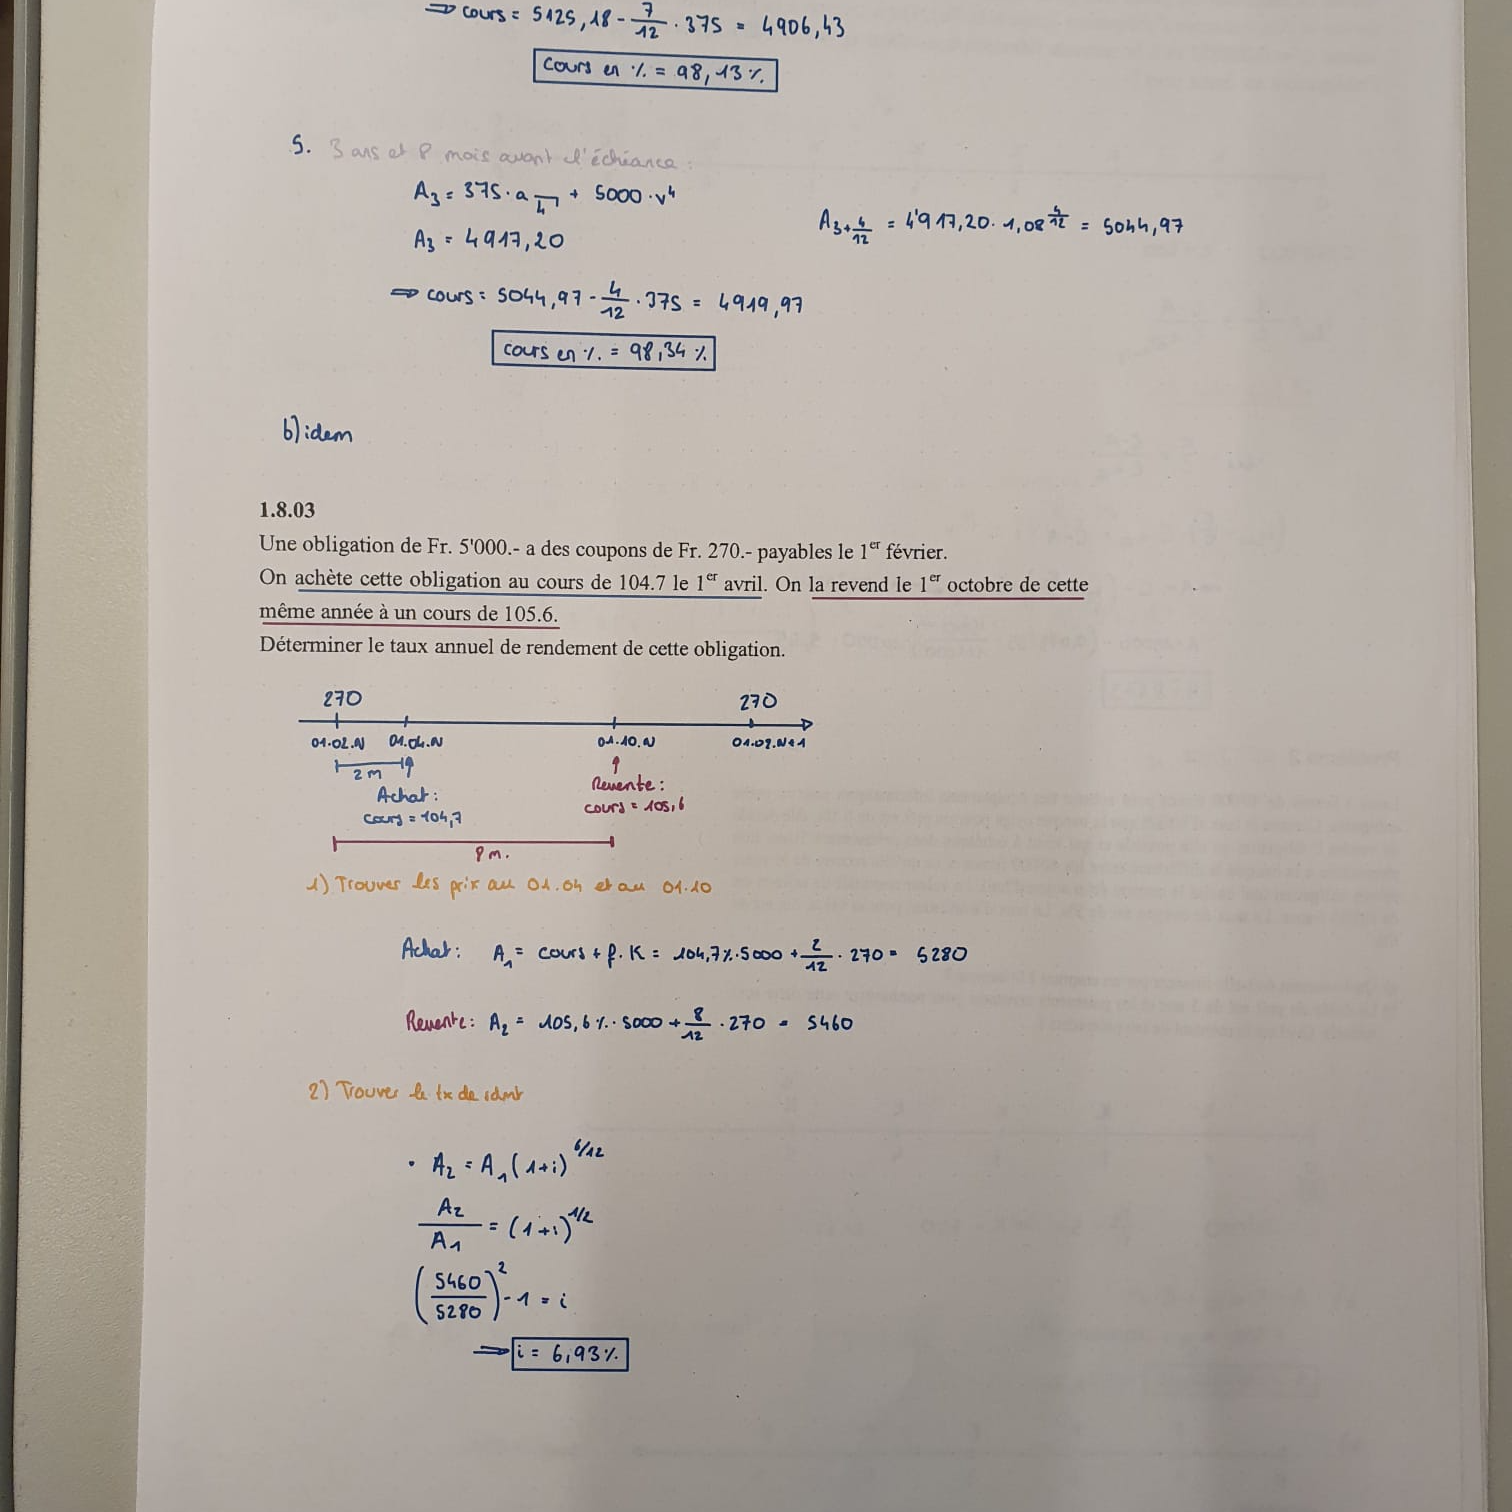 ⇒ cours = 5125,18 - 7/12 · 375 = 4906,43
cours en % = 98,13 %
5. 3 ans et 8 mois avant l'échéance :
A₃ = 375 · a 4 + 5000 · v⁴
A₃ = 4917,20
A₃₊₄/₁₂ = 4'917,20 · 1,08^4/12 = 5044,97
⇒ cours = 5044,97 - 4/12 · 375 = 4919,97
cours en % = 98,34 %
b) idem
1.8.03
Une obligation de Fr. 5'000.- a des coupons de Fr. 270.- payables le 1er février.
On achète cette obligation au cours de 104.7 le 1er avril. On la revend le 1er octobre de cette
même année à un cours de 105.6.
Déterminer le taux annuel de rendement de cette obligation.
270 270
01.02.N 01.04.N 01.10.N 01.02.N+1
2 m
Achat :
cours = 104,7
Revente :
cours = 105,6
8 m.
1) Trouver les prix au 01.04 et au 01.10
Achat : A₁ = cours + f. K = 104,7% · 5000 + 2/12 · 270 = 5280
Revente : A₂ = 105,6 % · 5000 + 8/12 · 270 = 5460
2) Trouver le tx de rdmt
· A₂ = A₁ (1+i)^6/12
A₂/A₁ = (1+i)^1/2
(5460/5280)² - 1 = i
⇒ i = 6,93 %